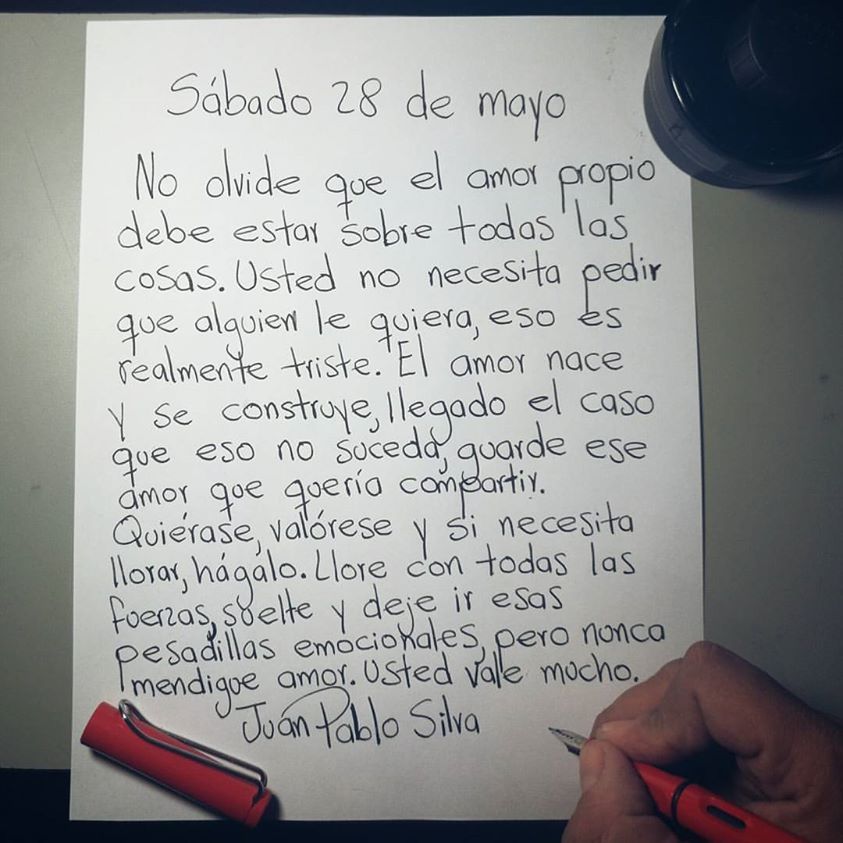 Sábado 28 de mayo
No olvide que el amor propio
debe estar sobre todas las
cosas. Usted no necesita pedir
que alguien le quiera, eso es
realmente triste. El amor nace
y se construye, llegado el caso
que eso no suceda, guarde ese
amor que quería compartir.
Quiérase, valórese y si necesita
llorar, hágalo. Llore con todas las
fuerzas, suelte y deje ir esas
pesadillas emocionales, pero nunca
mendigue amor. Usted vale mucho.
Juan Pablo Silva